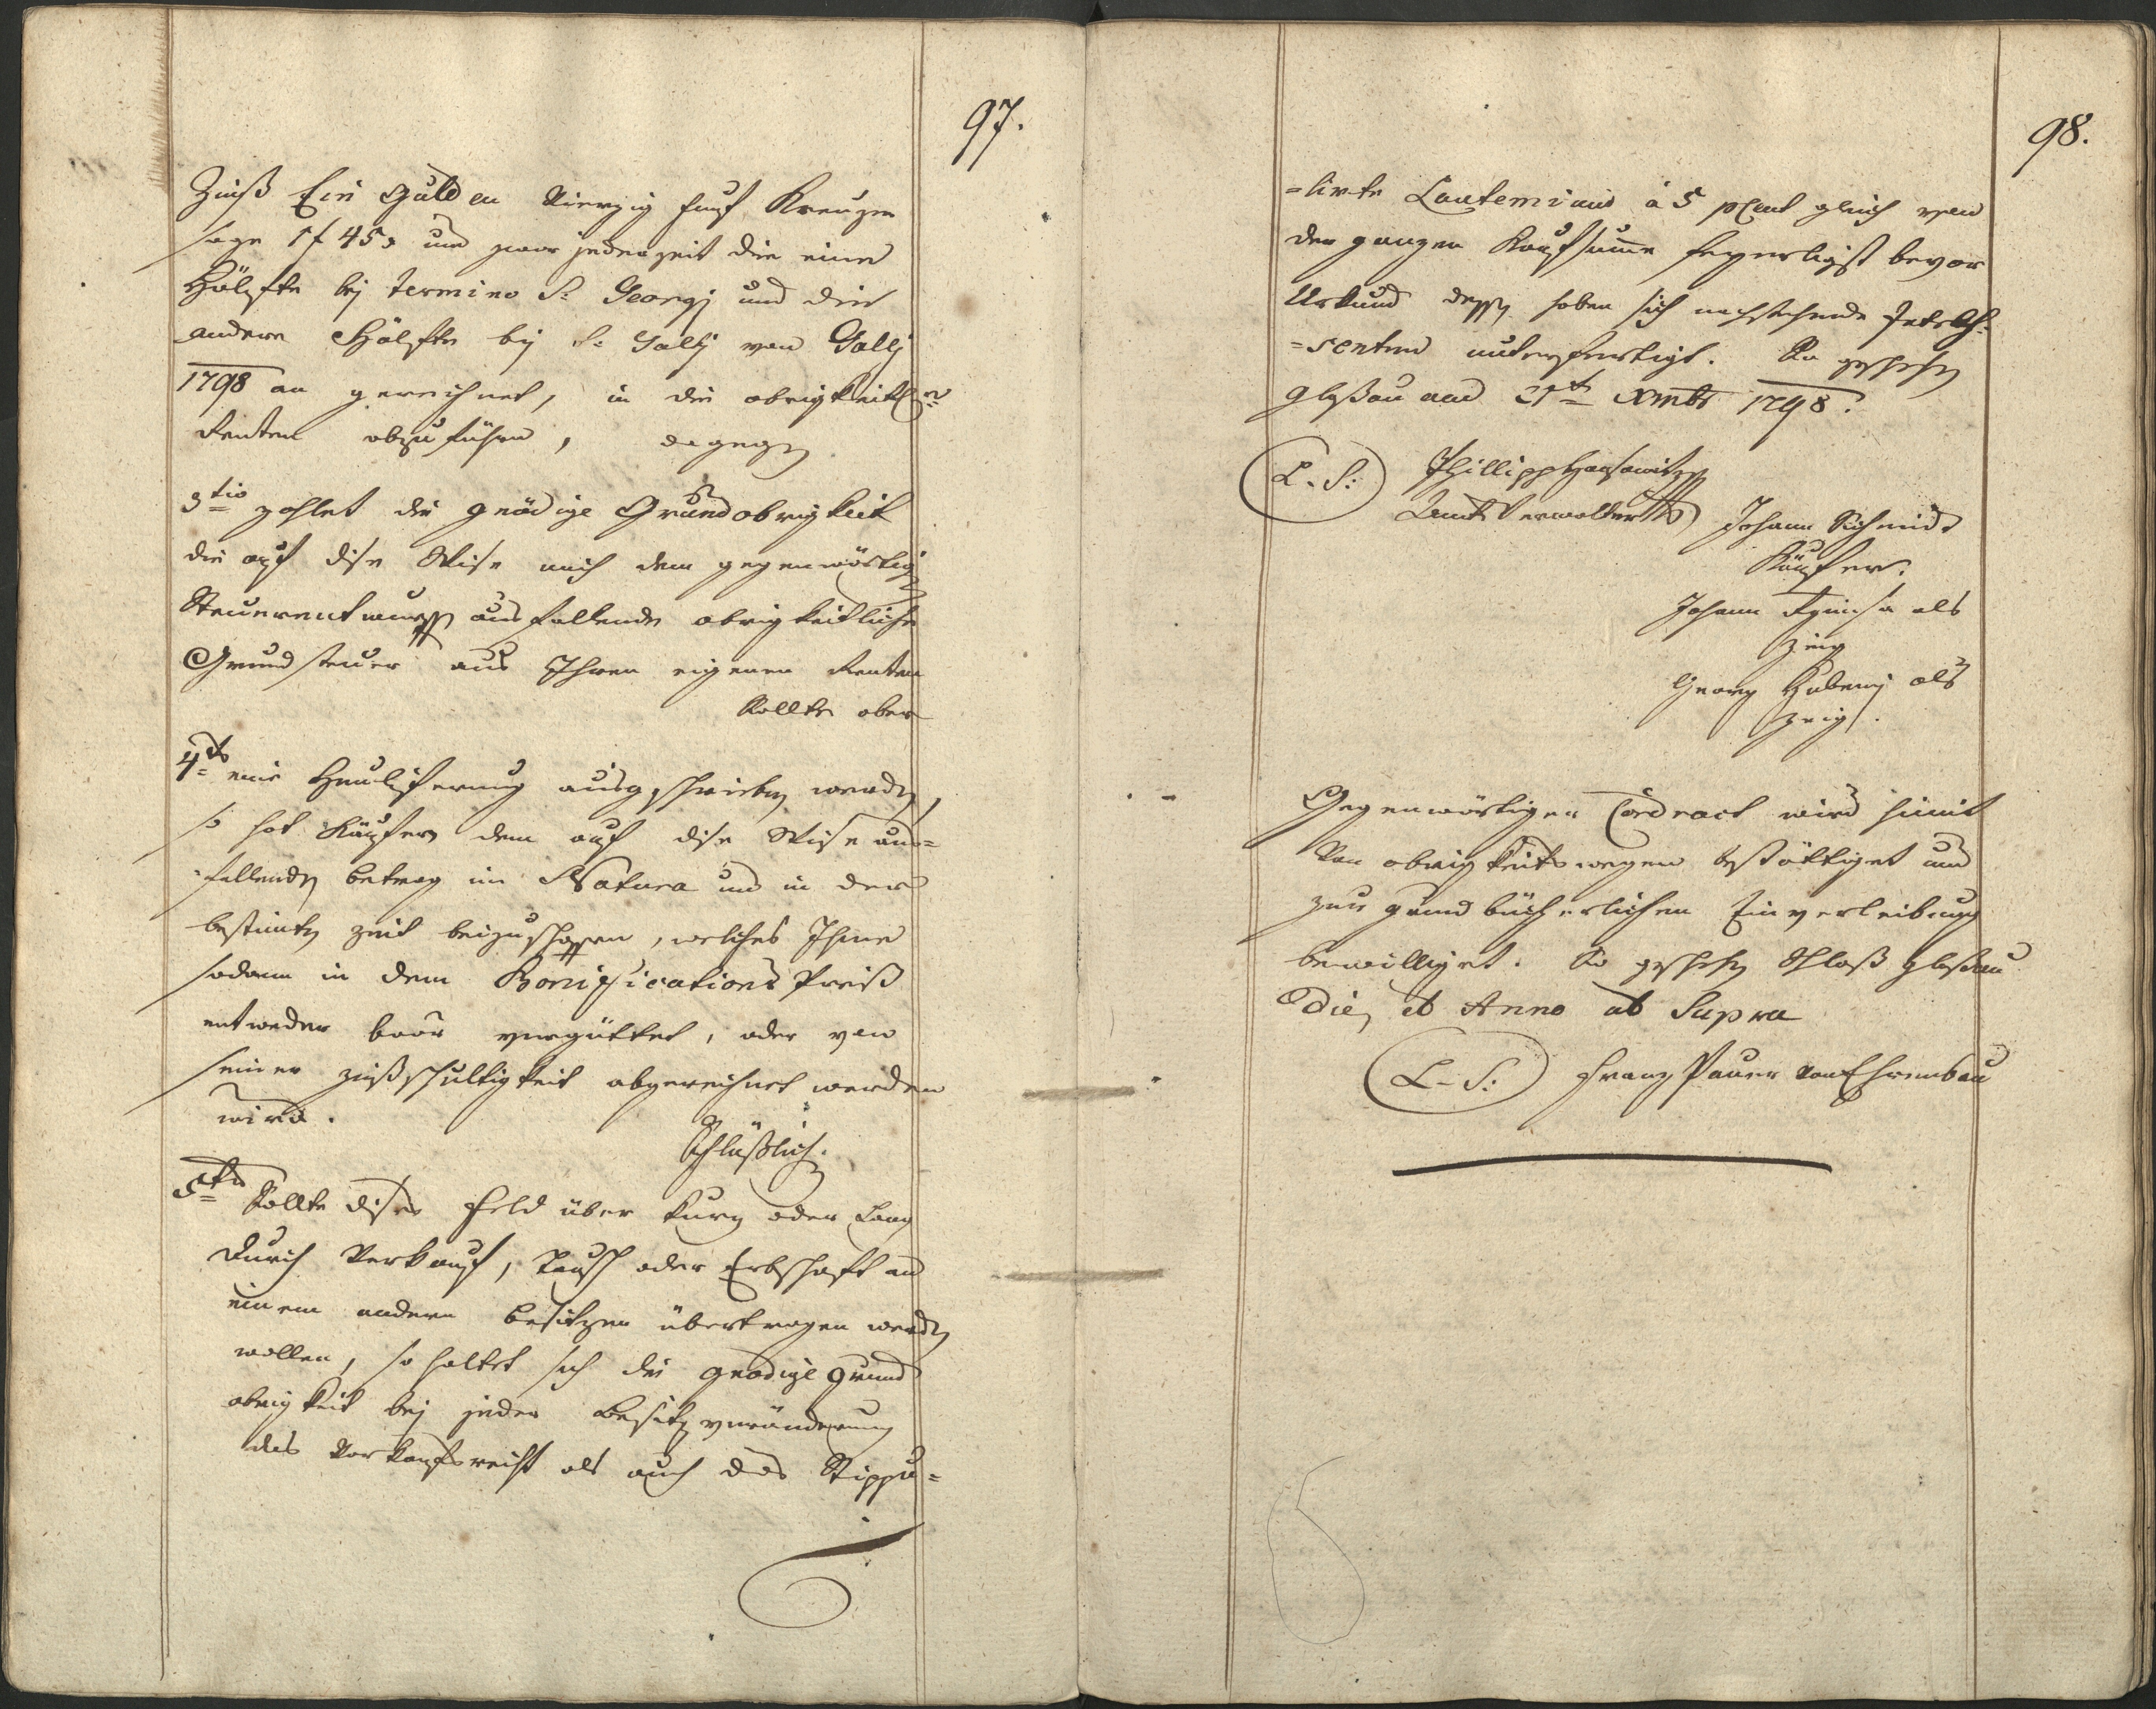 97.
Zinß Ein Gulden Vierzig fünf Kreuzer
sage 1 f 45 x und zwar jederzeit die eine
Hälfte bej termino St: Georgj und die
andere Hälfte bej St: Gallj von Gallj
1798 an gerechnet, in die obrigkeitl:
Renten abzuführen, dagegen
3tio zahlet die gnädige Grundobrigkeit
die auf dise Wise nach dem gegenwärtig
Steuerentwurff ausfallende obrigkeitliche
Grundsteuer aus Ihren eigenen Renten
Sollte aber
4to eine Heulieferung ausgeschrieben werden,
so hat Käufer dem auf dise Wise aus=
fallenden betrag in Natura und in der
bestimten zeit beizuschaffen, welches Ihme
sodann in dem Bonifications Preiß
entweder baar vergüttet, oder von
seiner zinßschultigkeit abgerechnet werden
wird.
Schlüßlich.
5to Sollte dises Feld über kurz oder Lang
durch Verkauf, Tausch oder Erbschaft an
einem andern besitzer übertragen werden
wollen, so haltet sich die gnädige Grund
obrigkeit bej jeder besitzveränderung
das Vorkaufsrecht als auch das Stippu=
98.
=lirte Laudemium à 5 pCent gleich von
der ganzen Kaufsumme feyerligst bevor
Urkund dessen haben sich nachstehende
=senten unterfertigt. So geschehen
Gloßau am 21t Xmbr 1798.
L. S: Phillipp
Amts Verwalter
Johann Schmid
Käufer.
Johann als
zeig
Georg Hubeny als
zeig.
Gegenwärtiger Contract wird hiemit
Von obrigkeitswegen bestättiget und
zur grundbücherlichen Einverleibung
bewilliget. So geschehen Schloß Gloßau
Die, et Anno ut Supra
L. S: Franz Pauer von Ehrenbau